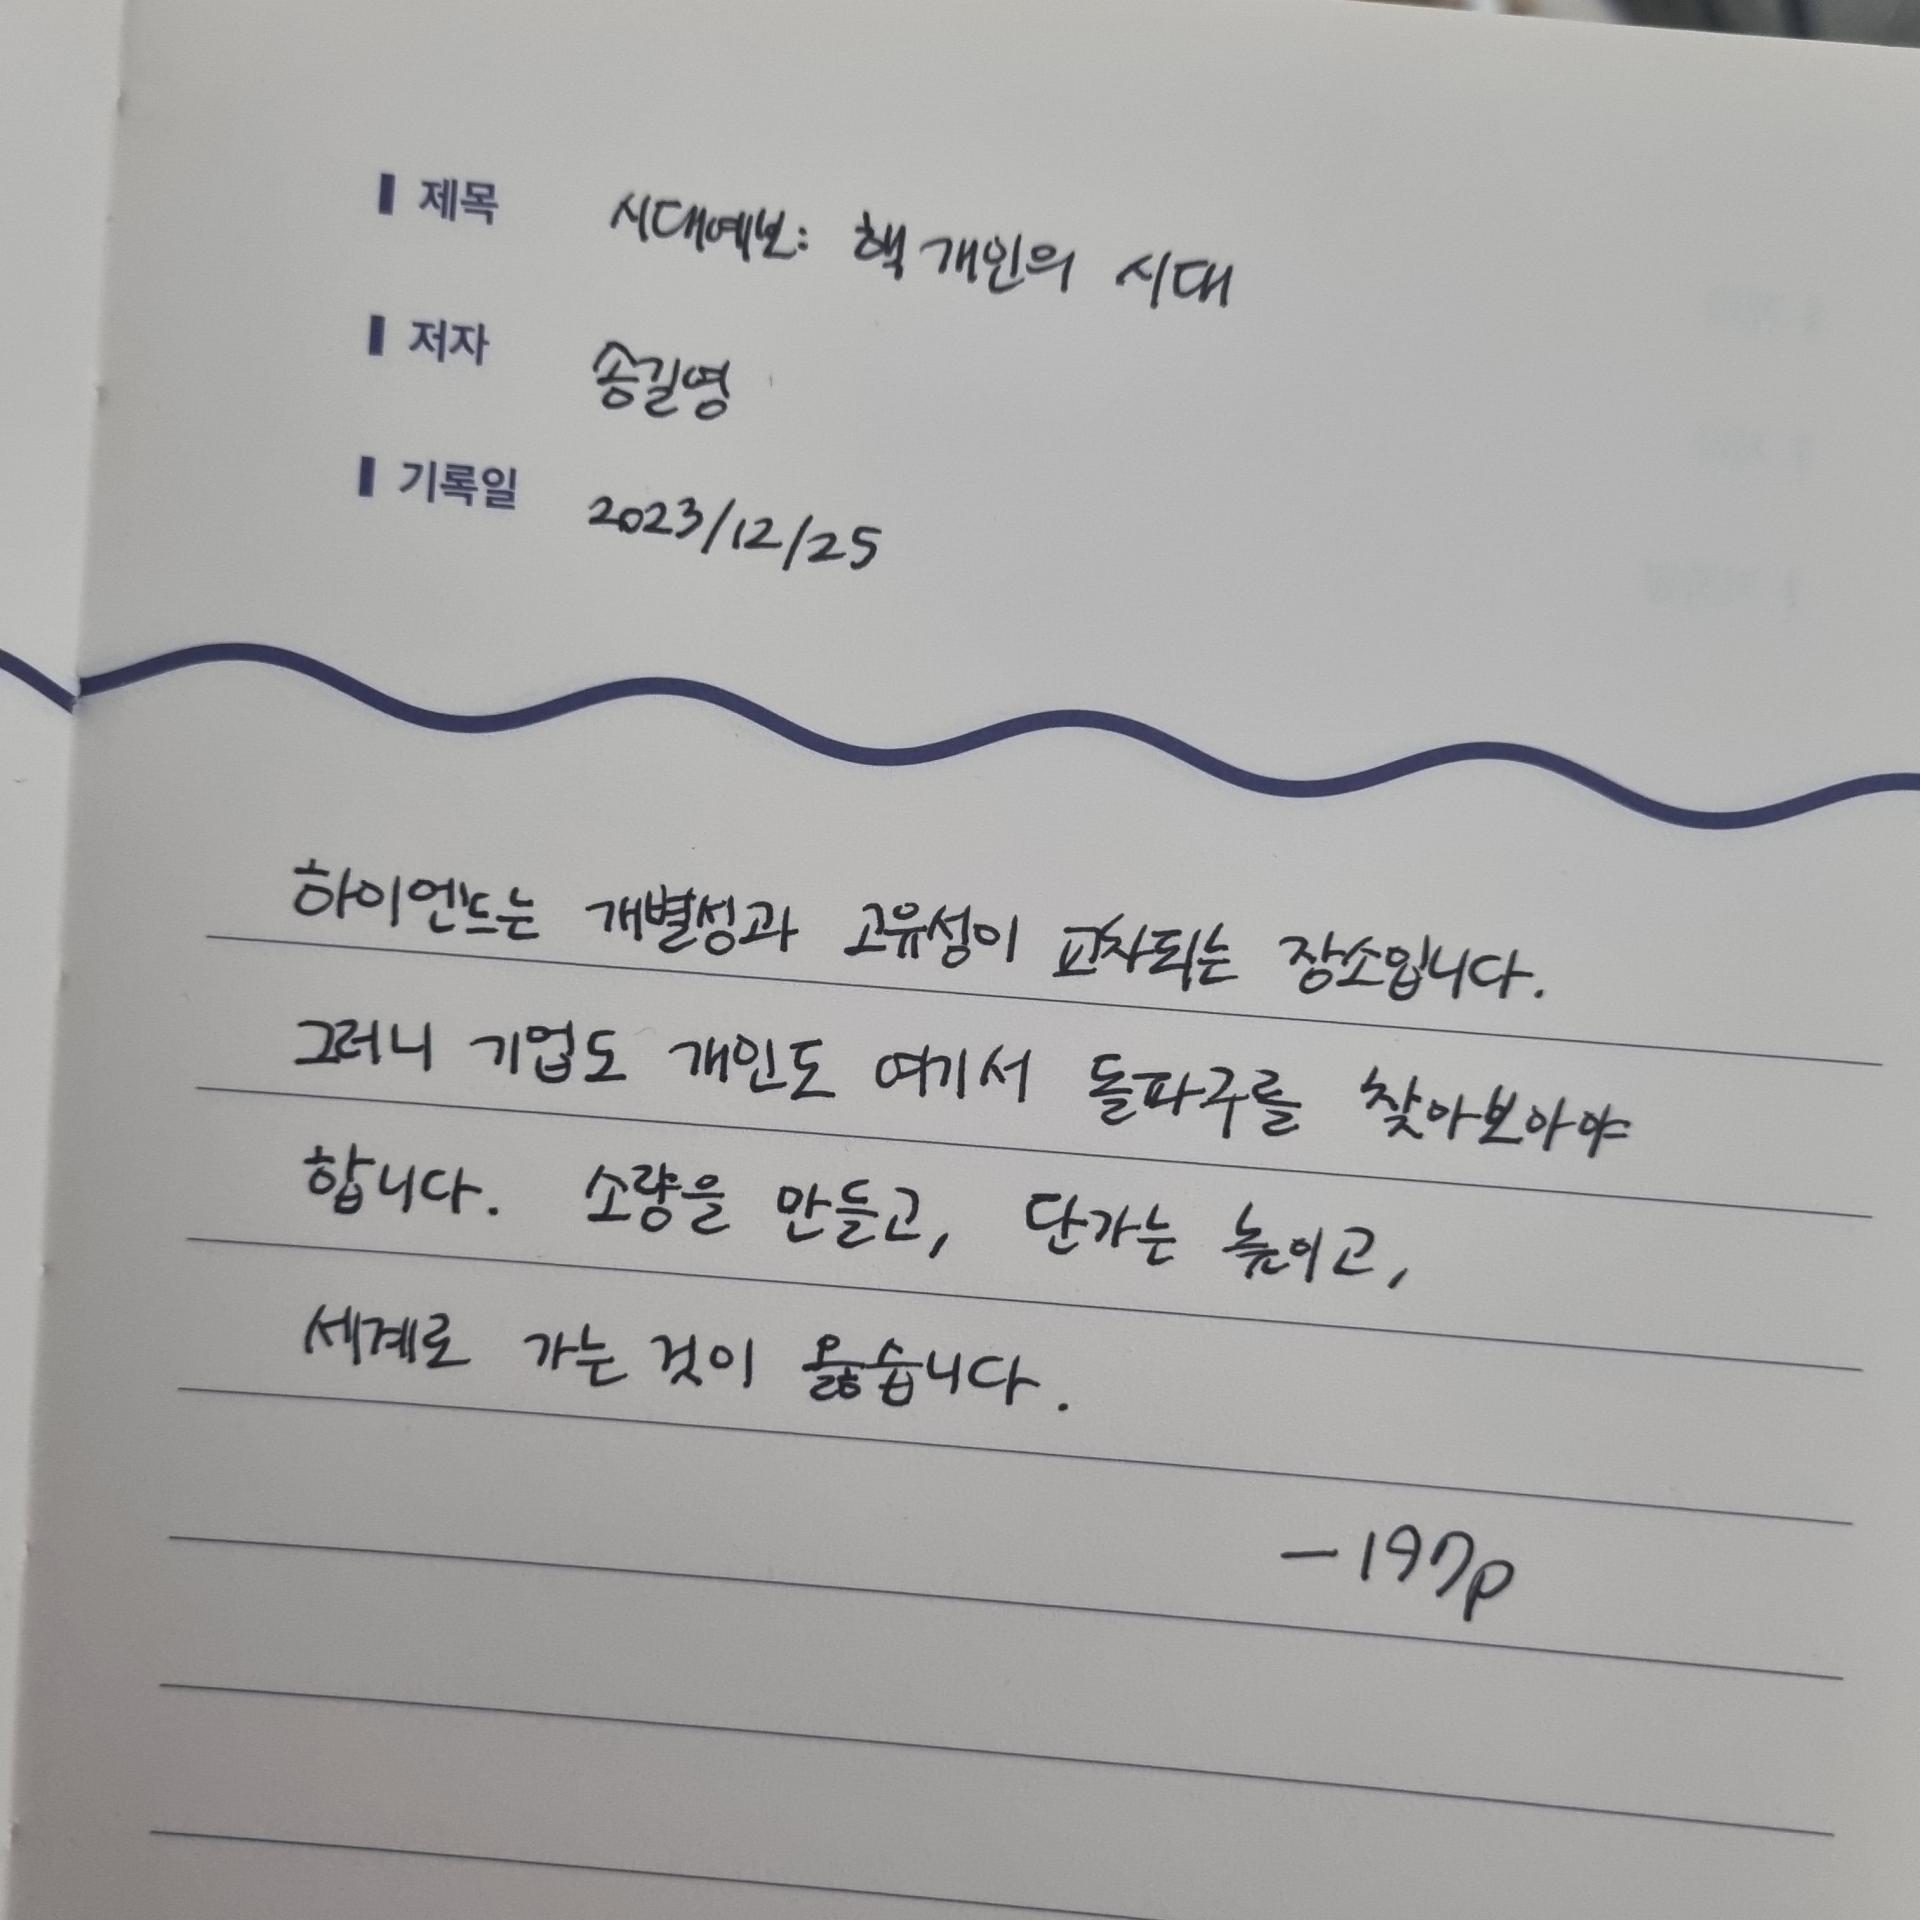 제목 시대예보: 핵개인의 시대
저자 송길영
기록일 2023/12/25
하이엔드는 개별성과 고유성이 교차되는 장소입니다.
그러니 기업도 개인도 여기서 돌파구를 찾아보아야
합니다. 소량을 만들고, 단가는 높이고,
세계로 가는 것이 옳습니다.
- 197p